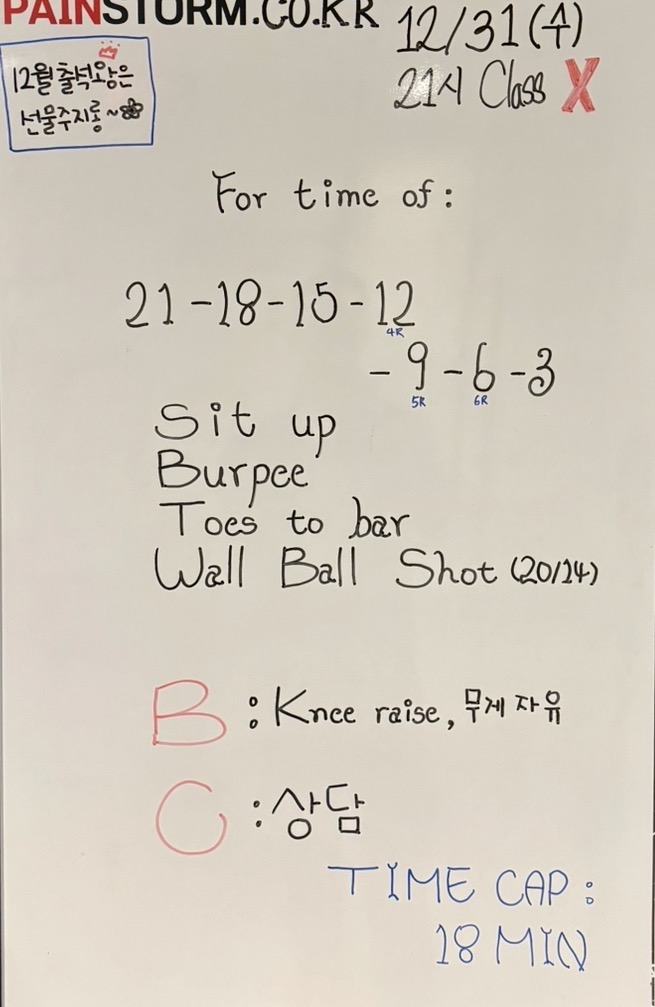 PAINSTORM.CO.KR
12/31(수)
21시 Class X
12월 출석왕은
선물주지롱~
For time of :
21-18-15-12
4R
-9-6-3
5R 6R
Sit up
Burpee
Toes to bar
Wall Ball Shot (20/14)
B : Knee raise, 무게 자유
C : 상담
TIME CAP :
18 MIN